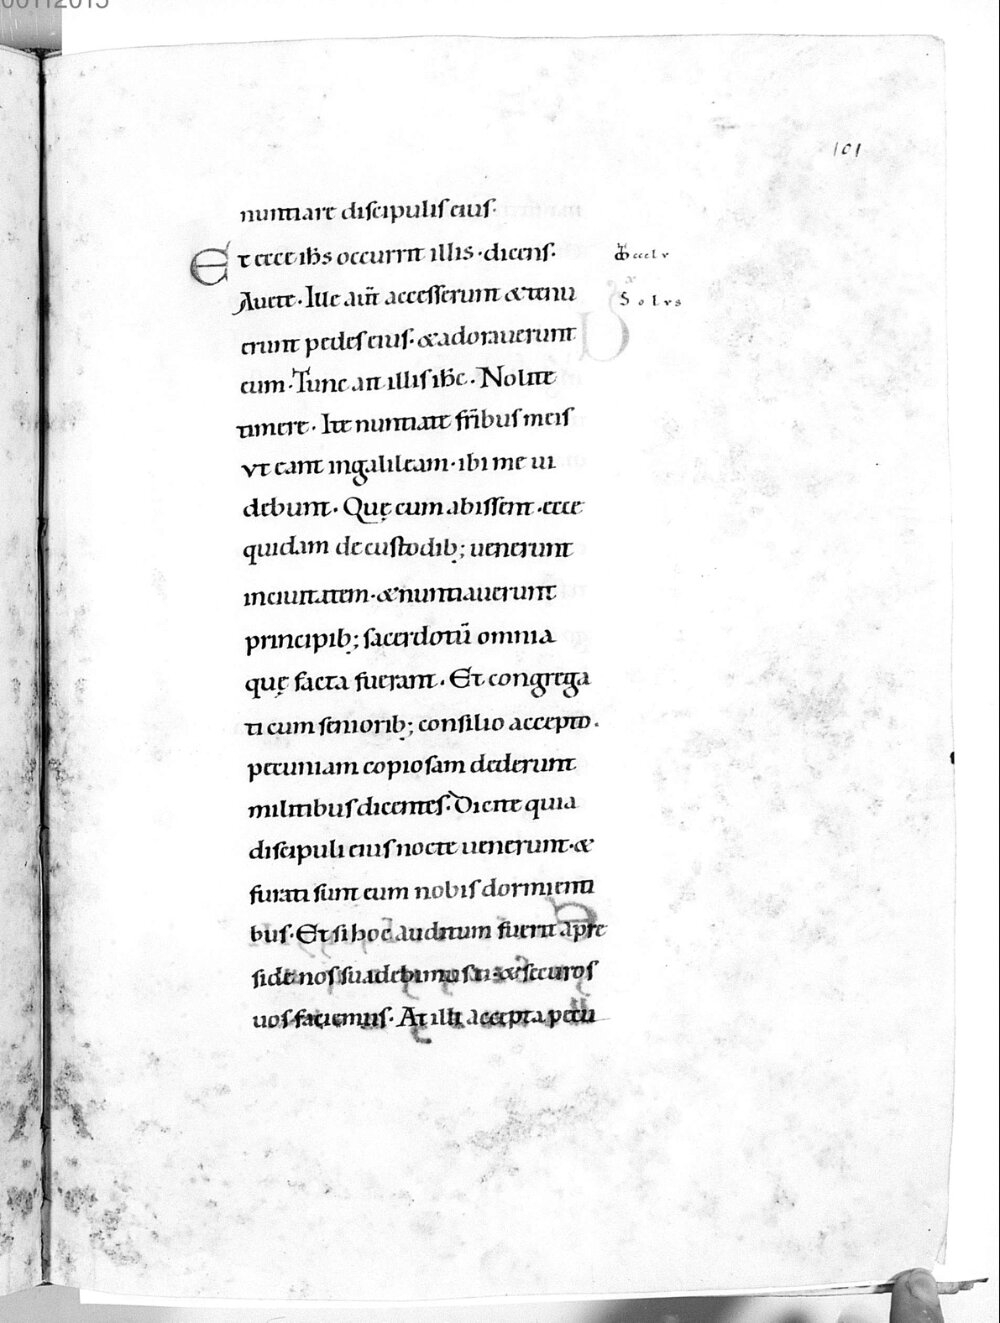 101
nuntiare discipulis eius·
Et ecce ih̅s occurrit illis · dicens·
Auete · Ille aut̅ accesserunt & tenu
erunt pedes eius· & adorauerunt
eum · Tunc ait illis ih̅c · Nolite
timere · Ite nuntiate fr̅ibus meis
vt eant ingalileam · ibi me ui
debunt · Quę cum abissent · ecce
quidam de custodib; uenerunt
inciuitatem · & nuntiauerunt
principib; sacerdotū omnia
quę facta fuerant · Et congrega
ti cum seniorib; consilio accepto ·
pecuniam copiosam dederunt
militibus dicentes· Dicite quia
discipuli eius nocte uenerunt · &
furati sunt eum nobis dormienti
bus· Et si hoc auditum fuerit apre
side nos suadebimus ei · & securos
uos faciemus· At illi accepta pecu